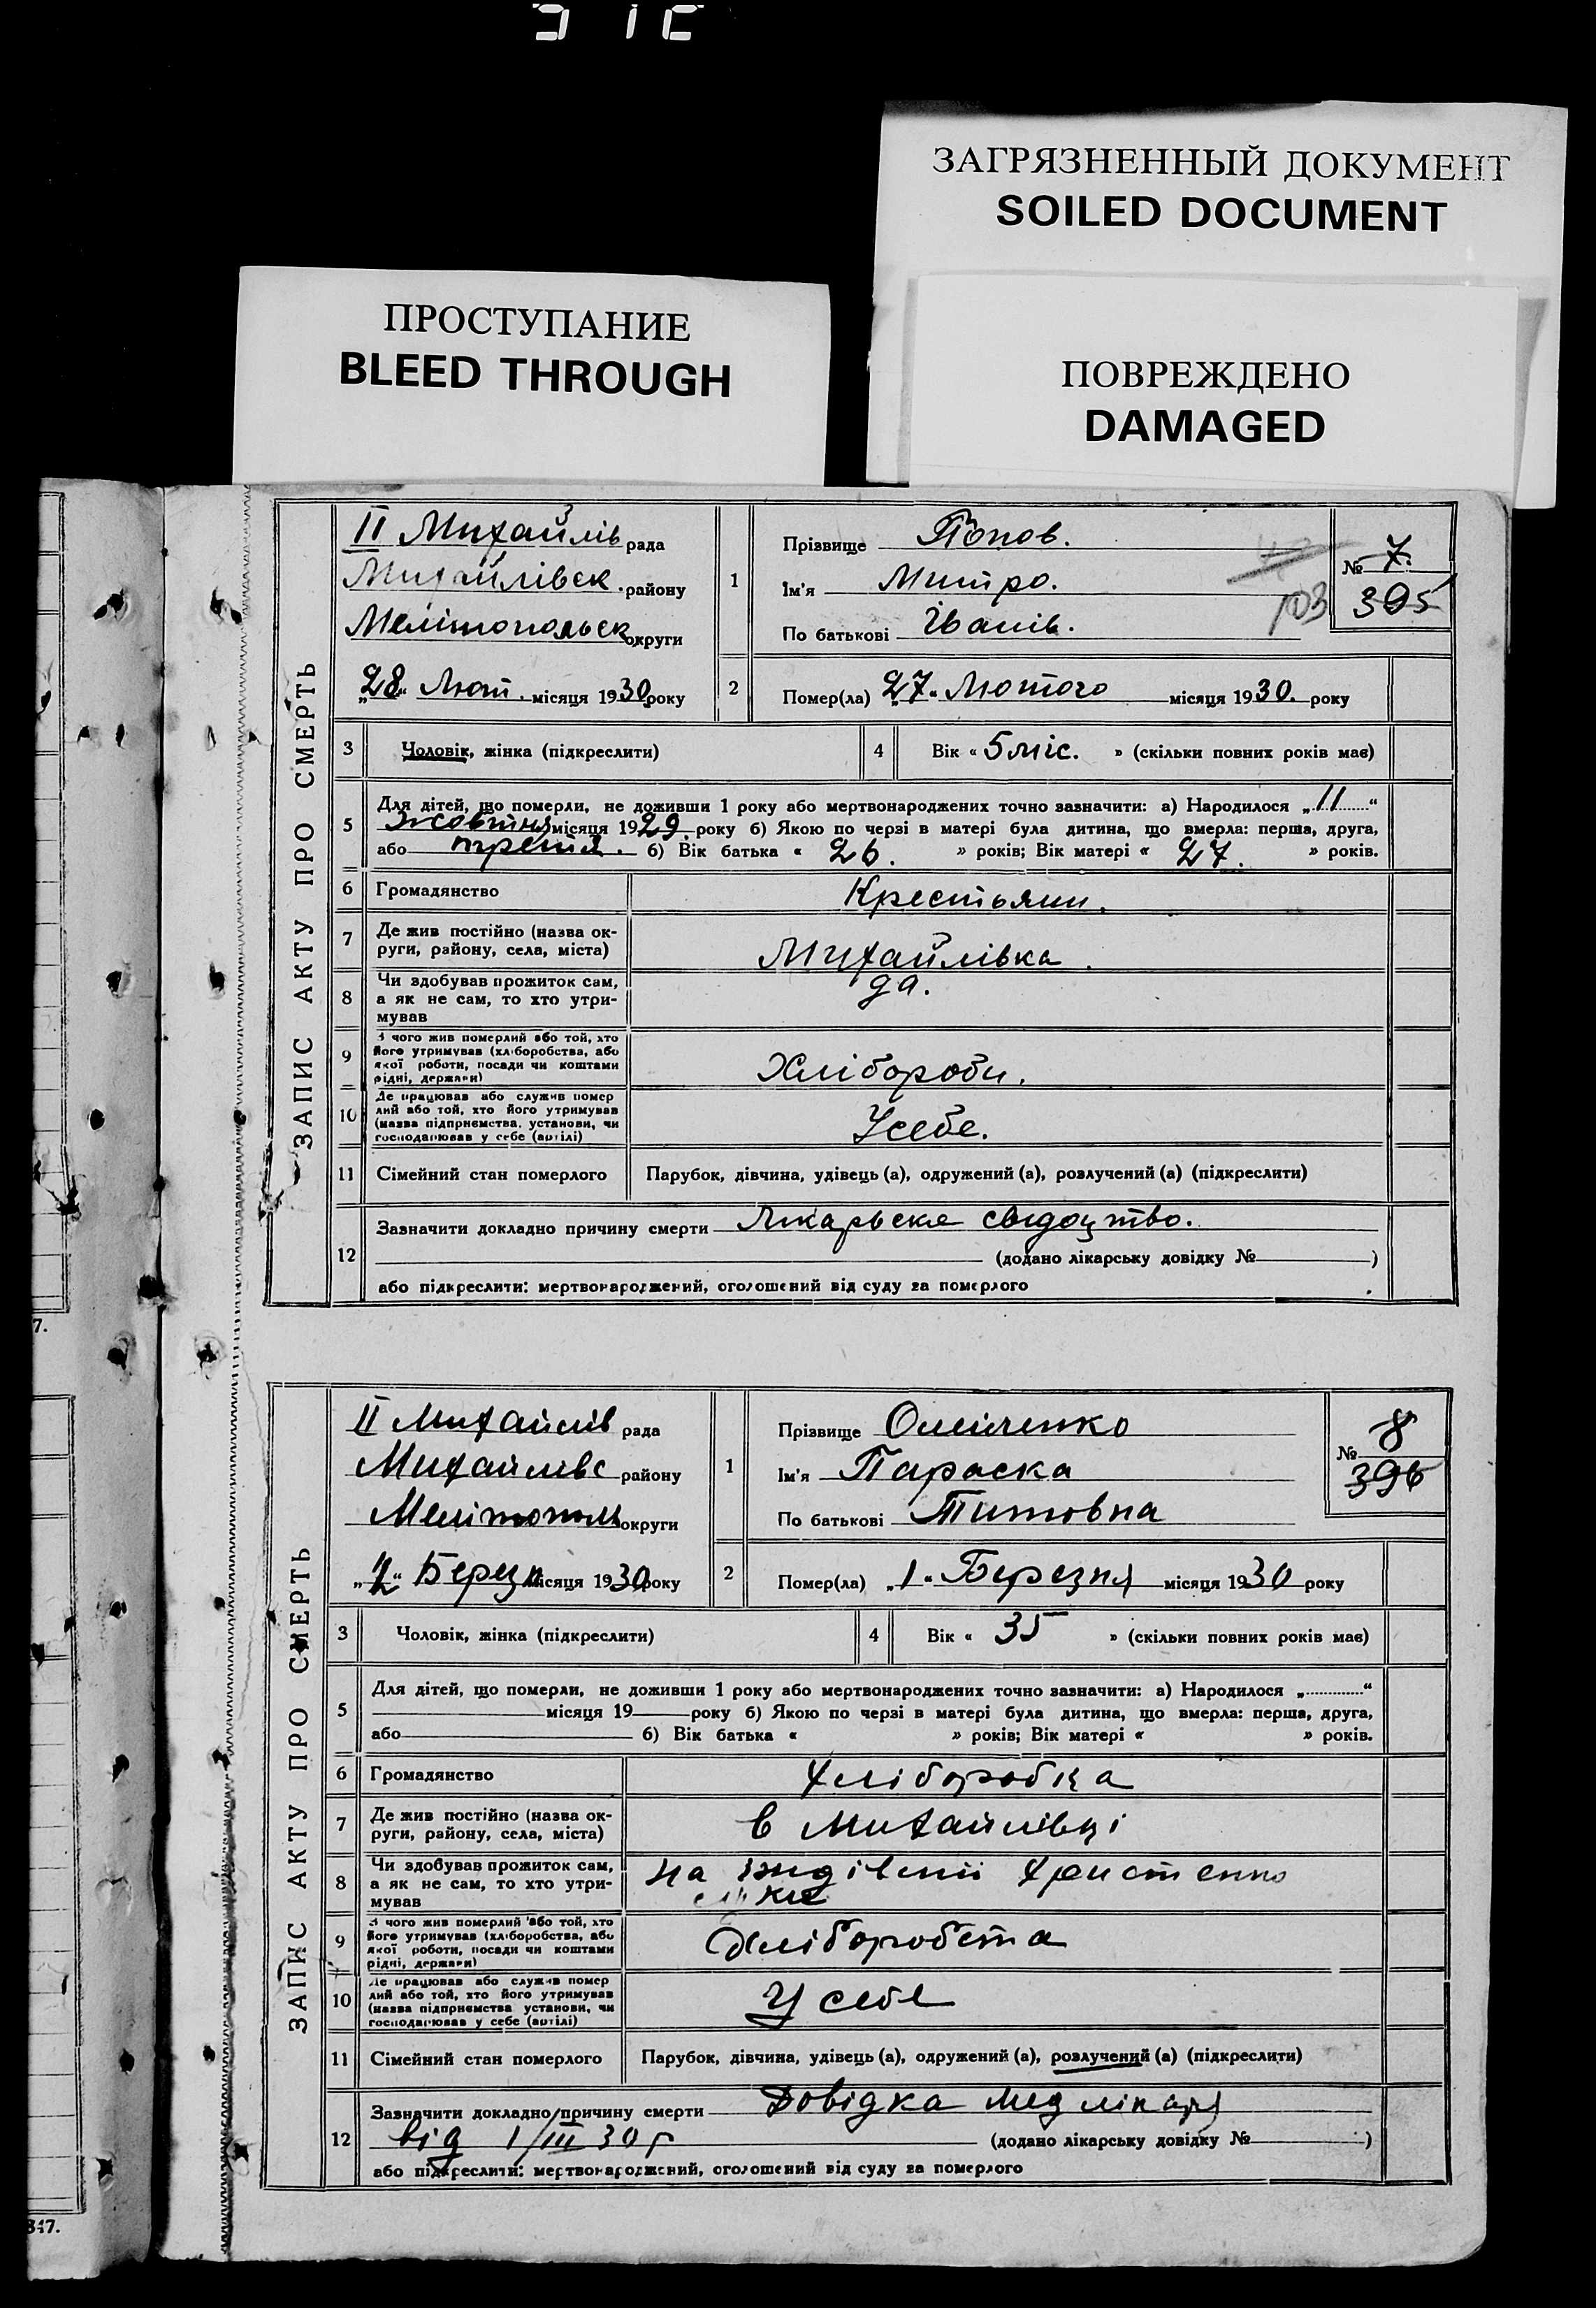 ЗАГРЯЗНЕННЫЙ ДОКУМЕНТ
SOILED DOCUMENT
ПРОСТУПАНИЕ
BLEED THROUGH
ПОВРЕЖДЕНО
DAMAGED
ЗАПИС АКТУ ПРО СМЕРТЬ
II Михайлів рада
Михайлівск. району
Мелітопольск округи
„28“ Лют. місяця 1930 року
1
Прізвище Попов.
Ім'я Митро.
По батькові Іванів.
103
№ 7.
395
2
Помер(ла) „27“ Лютого місяця 1930. року
3 Чоловік, жінка (підкреслити)
4 Вік « 5 міс. » (скільки повних років має)
5 Для дітей, що померли, не доживши 1 року або мертвонароджених точно зазначити: а) Народилося „11“
жовтня місяця 1929. року б) Якою по черзі в матері була дитина, що вмерла: перша, друга,
або третя. б) Вік батька « 26. » років; Вік матері « 27. » років.
6 Громадянство Крестьянин.
7 Де жив постійно (назва ок-
руги, району, села, міста) Михайлівка.
8 Чи здобував прожиток сам,
а як не сам, то хто утри-
мував да.
9 З чого жив померлий або той, хто
його утримував (хліборобства, або
якої роботи, посади чи коштами
рідні, держави) Хлібороби.
10 Де працював або служив помер
лий або той, хто його утримував
(назва підприємства, установи, чи
господарював у себе (артілі) Усебе.
11 Сімейний стан померлого Парубок, дівчина, удівець (а), одружений (а), розлучений (а) (підкреслити)
12 Зазначити докладно причину смерти Лікарьске свідоцтво.
(додано лікарську довідку № )
або підкреслити: мертвонароджений, оголошений від суду за померлого
7.
ЗАПИС АКТУ ПРО СМЕРТЬ
II Михайлів рада
Михайлівс району
Мелітополь округи
Березн місяця 1930 року
1
Прізвище
Ім'я Параска
По батькові Титовна
№ 8
396
2
Помер(ла) „1“ Березня місяця 1930 року
3 Чоловік, жінка (підкреслити)
4 Вік « 35 » (скільки повних років має)
5 Для дітей, що померли, не доживши 1 року або мертвонароджених точно зазначити: а) Народилося „ “
місяця 19 року б) Якою по черзі в матері була дитина, що вмерла: перша, друга,
або б) Вік батька « » років; Вік матері « » років.
6 Громадянство Хліборобка
7 Де жив постійно (назва ок-
руги, району, села, міста) в Михайлівці
8 Чи здобував прожиток сам,
а як не сам, то хто утри-
мував на
9 З чого жив померлий або той, хто
його утримував (хліборобства, або
якої роботи, посади чи коштами
рідні, держави) Хліборобства
10 Де працював або служив помер
лий або той, хто його утримував
(назва підприємства установи, чи
господарював у себе (артілі) У себе
11 Сімейний стан померлого Парубок, дівчина, удівець (а), одружений (а), розлучений (а) (підкреслити)
12 Зазначити докладно причину смерти Довідка мед лікаря
від 1/III 30 р (додано лікарську довідку № )
або підкреслити: мертвонароджений, оголошений від суду за померлого
347.